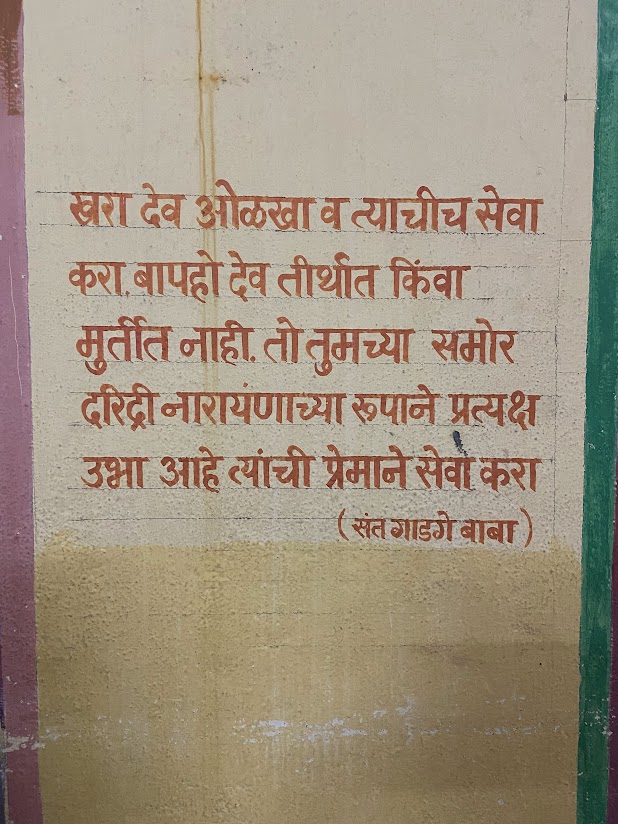 खरा देव ओळखा व त्याचीच सेवा
करा. बापहो देव तीर्थात किंवा
मुर्तीत नाही. तो तुमच्या समोर
दरिद्री नारायंणाच्या रूपाने प्रत्यक्ष
उभा आहे त्यांची प्रेमाने सेवा करा
(संत गाडगे बाबा)